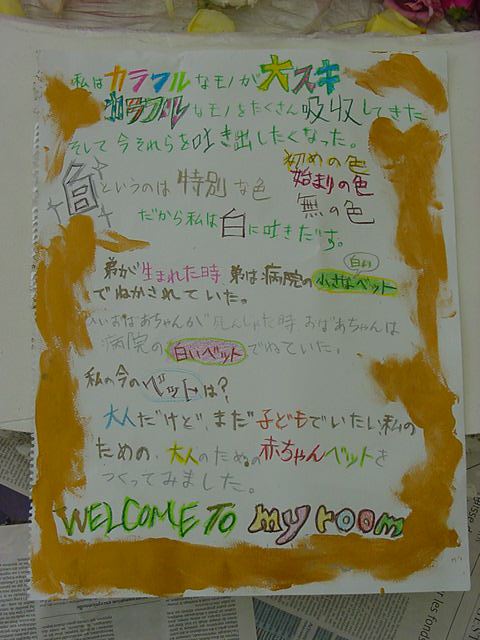 私はカラフルなモノが大スキ
カラフルなモノをたくさん吸収してきた
そして今それらを吐き出したくなった。
初めの色
白というのは特別な色
始まりの色
無の色
だから私は白に吐きだす。
弟が生まれた時 弟は病院の小さなベット
白い
でねかされていた。
ひいおばあちゃんが死んじゃった時 おばあちゃんは
病院の白いベットでねていた。
私の今のベットは?
大人だけど、まだ子どもでいたい私の
ための、大人のための赤ちゃんベットを
つくってみました。
WELCOME TO my room